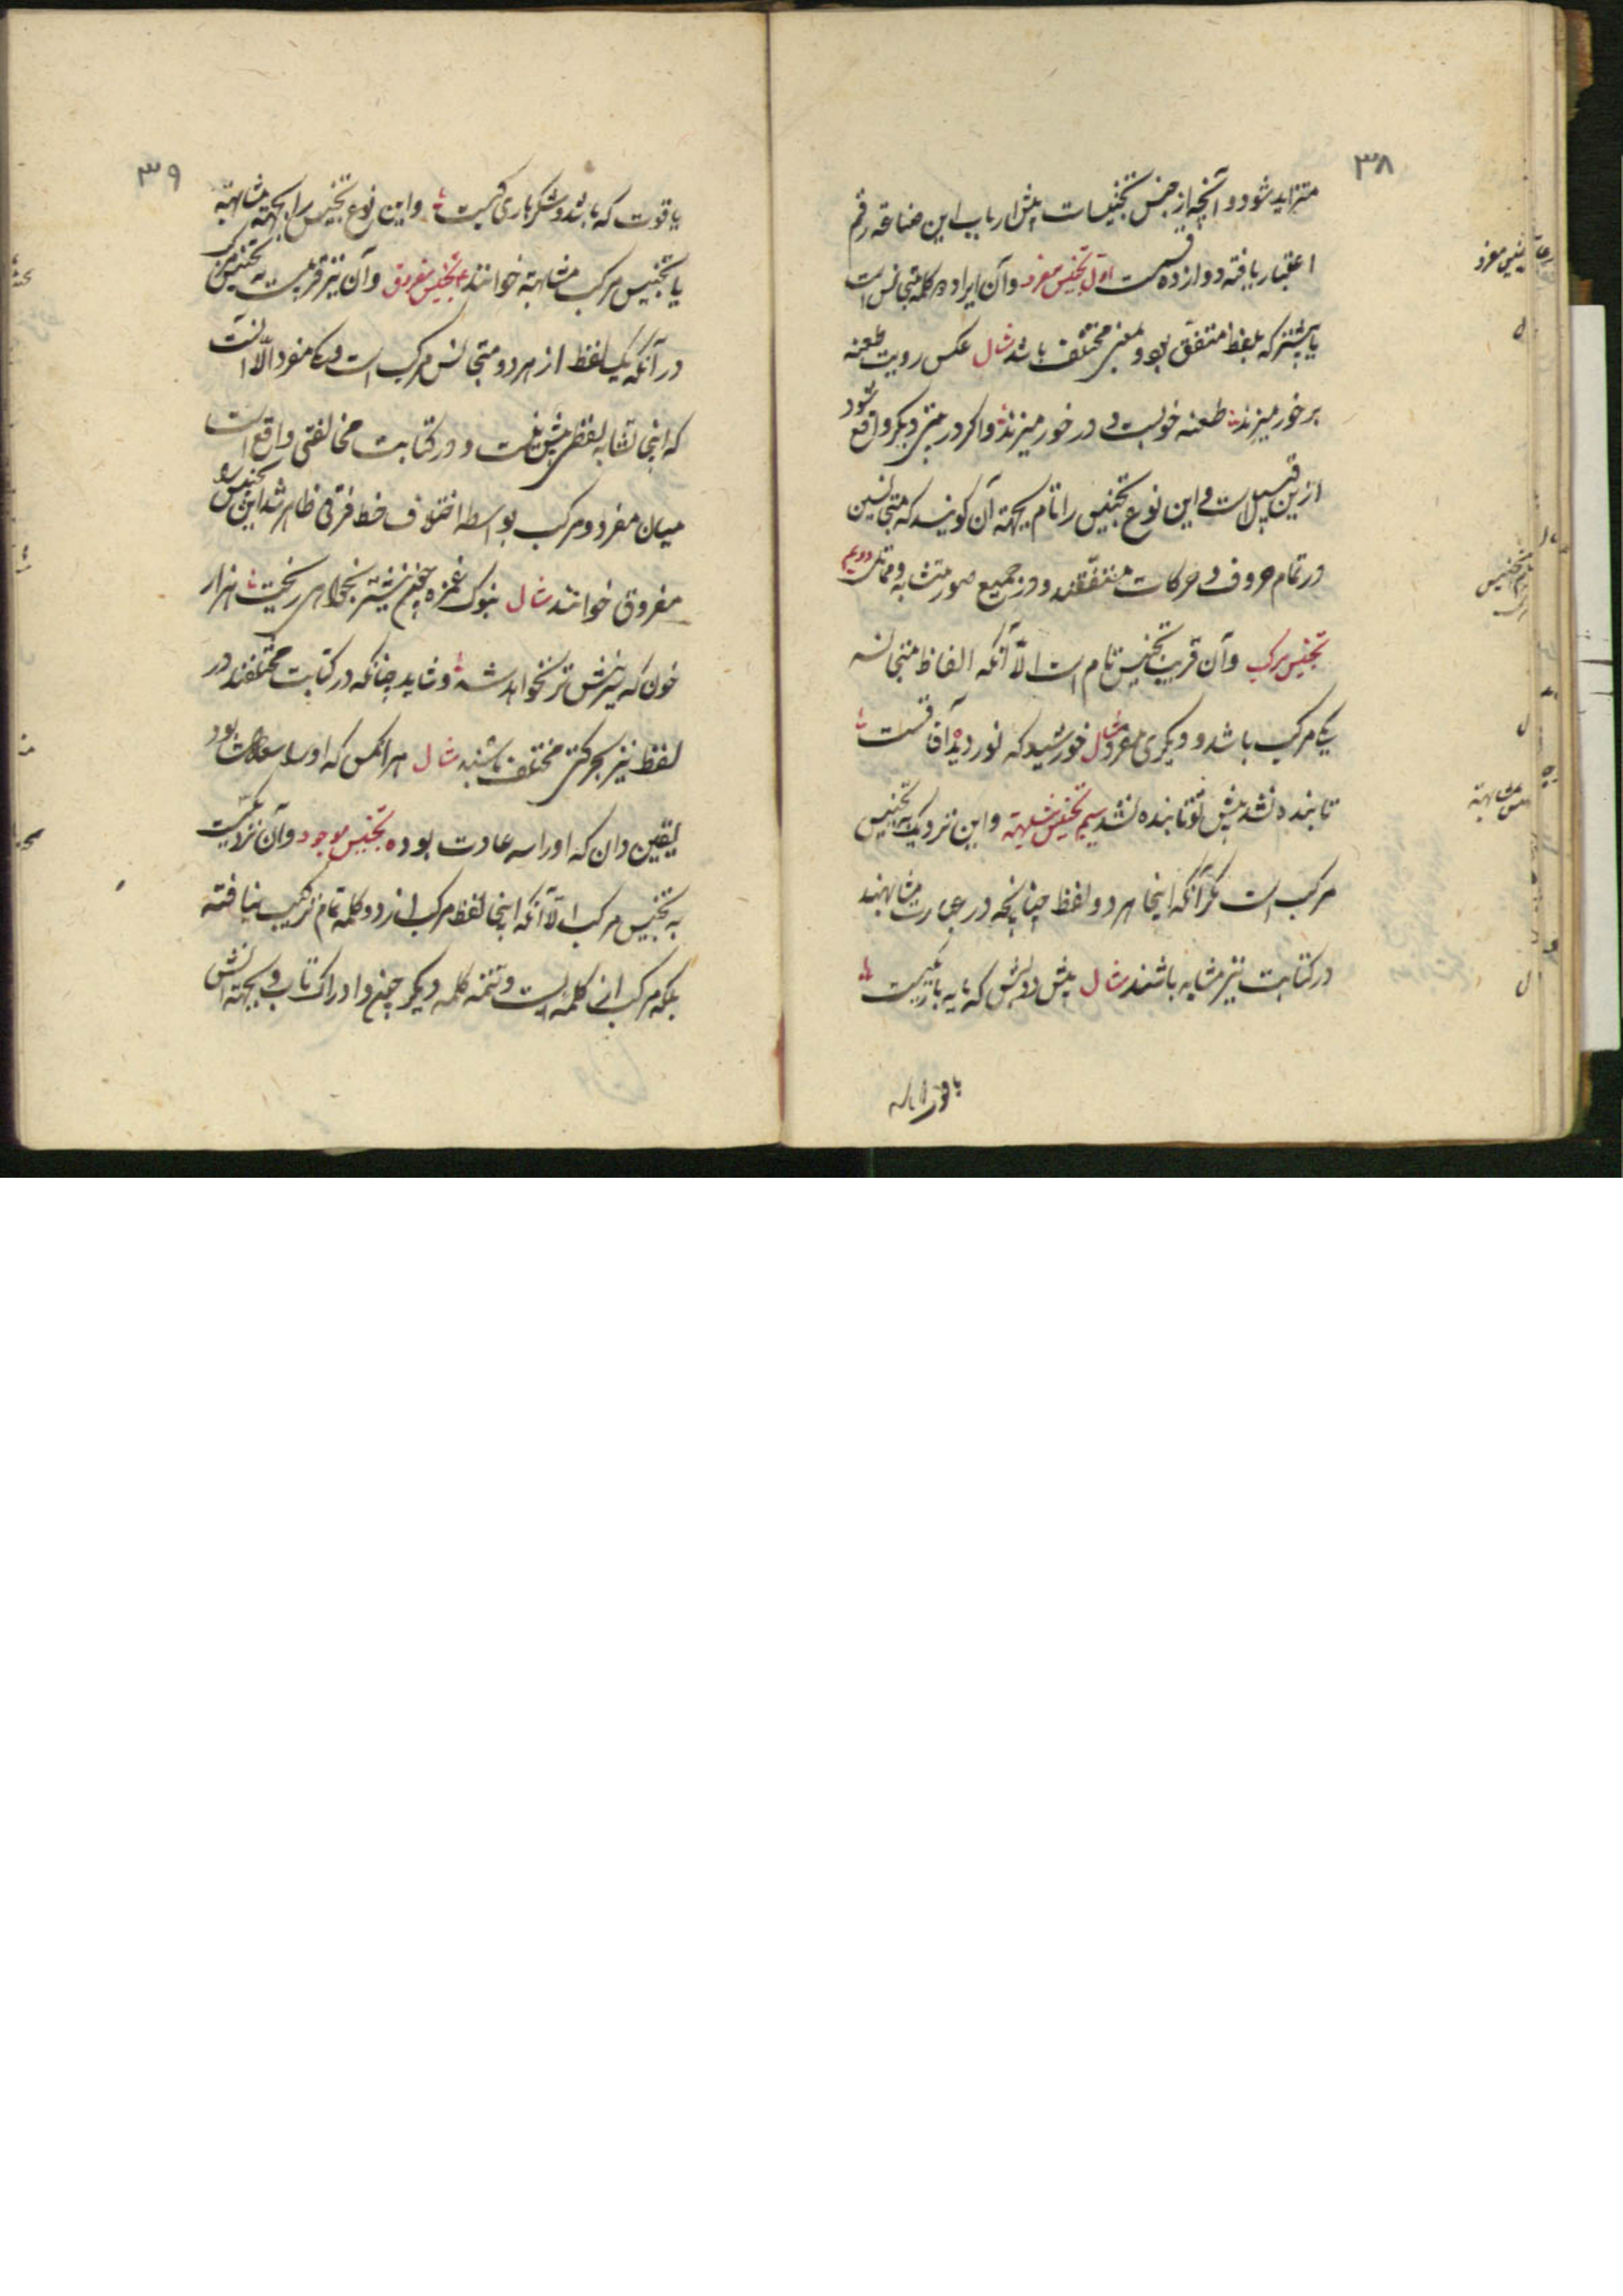 ۳۸
متزاید شود و آنچه از جنس تجنیسات پیش ارباب این صناعه رقم
اعتبار یافته دوازده قسمت اول تجنیس مفرد و آن ایراد دو کلمه متجانس است
یا بیشتر که بلفظ متفق بود و بمعنی مختلف باشد مثال عکس رویت طعنه
بر خور میزند طعنه خوبست و در خور میزند و اگر در متنی دیگر واقع شود
ازین قبیل است و این نوع تجنیس را تام بجهة آن گویند که متجانسین
در تمام حروف و حرکات متفقند و در جمیع صور متشابه و مماثل دویم
تجنیس مرکب و آن قریب تجنیس تام است الّا آنکه الفاظ متجانسه
یکی مرکب باشد و دیگری مفرد مثال خورشید که نور دیدۀ آفاقست
تابنده نشد پیش تو تا بنده نشد سیم تجنیس مشابهة و این نزدیک به تجنیس
مرکب است مگر آنکه اینجا هر دو لفظ چنانچه در عبارت مشابهند
در کتابت نیز مشابه باشند مثال پیش دولبش که
تجنیس مفرد
مشابهة
۳۹
یاقوت که باشد و شکر باری کیست و این نوع تجنیس را بجهة مشابهة
یا تجنیس مرکب مشابهة خوانند تجنیس مفروق و آن نیز قریبست به تجنیس مرکب
در آنکه یک لفظ از هر دو متجانس مرکب است و یکی مفرد الّا آنست
که اینجا تشابه لفظی بیش نیست و در کتابت مخالفتی واقع است
میان مفرد و مرکب بواسطه اختلاف خط فرقی ظاهر شد این تجنیس را
مفروق خوانند مثال بنوک غمزه چون نیشتر بخواهی ریخت هزار
خون که سر نیش تر نخواهد شد و شاید چنانکه در کتابت مختلفند در
لفظ نیز بحرکتی مختلف باشند مثال هر آنکس که او را سعادت بود
یقین دان که او را سه عادت بود ه تجنیس موجود و آن نزدیکست
به تجنیس مرکب الّا آنکه اینجا لفظ مرکب از دو کلمه تمام ترکیب نیافته
بلکه مرکب از کلمه ایست و تتمه کلمه دیگر چون